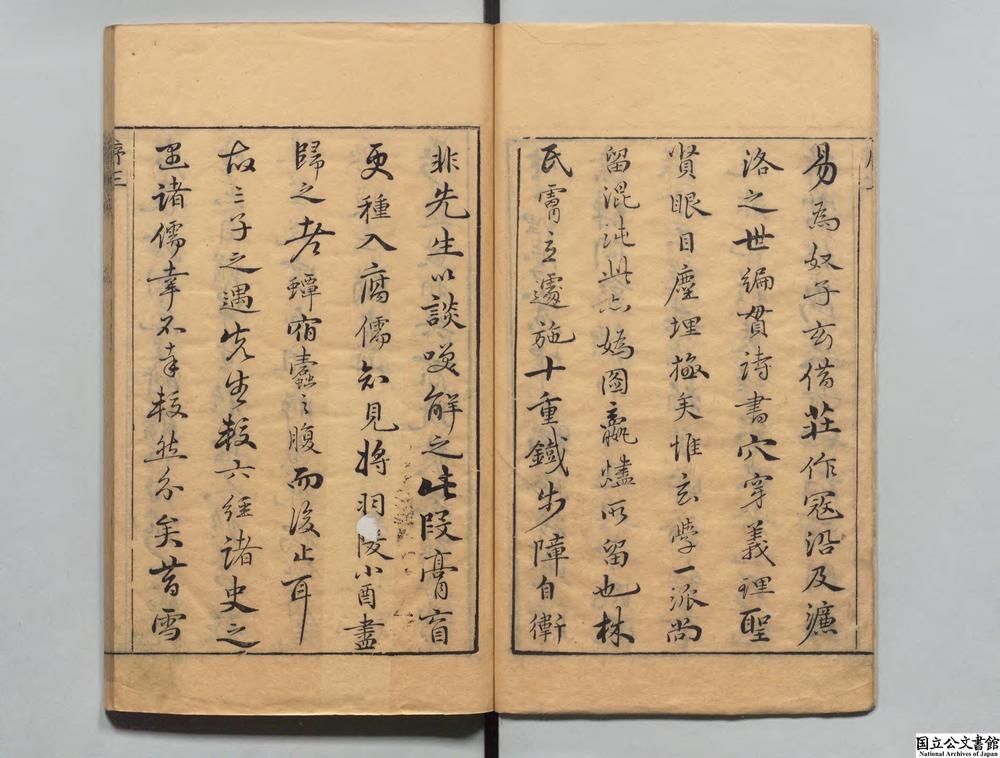 易為奴子玄借莊作冦沿及濂
洛之世編貫詩書穴穿義理聖
賢眼目塵埋極矣惟玄學一派尚
留混沌此亦媯圖嬴燼所留也林
氏膏立遽施十重鐵步障自衛
非先生以談笑解之此段膏肓
更種入腐儒知見將羽陵小酉盡
歸之老蟫宿蠹之腹而後止耳
故三子之遇先生較六經諸史之
遇諸儒幸不幸較然分矣昔雪
序三
国立公文書館
National Archives of Japan